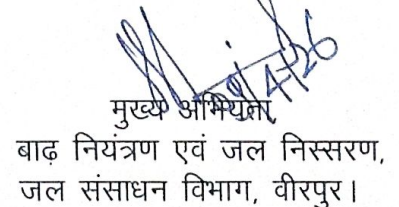 9/4/26
मुख्य अभियंता,
बाढ़ नियंत्रण एवं जल निस्सरण,
जल संसाधन विभाग, वीरपुर।